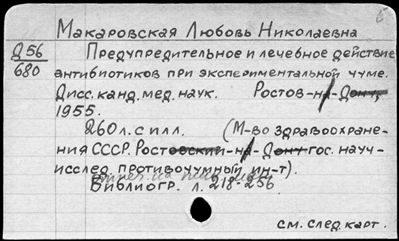 Макаровская Любовь Николаевна
Д56
680
Предупредительное и лечебное действие
антибиотиков при экспериментальной чуме.
Дисс. канд. мед. наук. Ростов-на-Дону,
1955.
260 л. с илл. (М-во здравоохране-
ния СССР. Ростовский-на-Дону гос. науч-
исслед. противочумный ин-т).
Библиогр. л. 218-256.
см. след. карт.